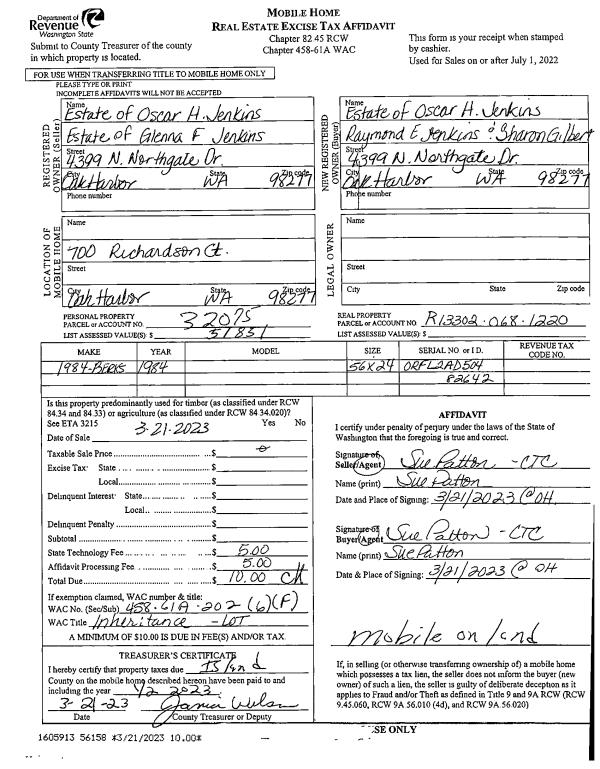 MOBILE HOME
REAL ESTATE EXCISE TAX AFFIDAVIT
Chapter 82.45 RCW
Chapter 458-61A WAC
Department of
Revenue
Washington State
Submit to County Treasurer of the county
in which property is located.
This form is your receipt when stamped
by cashier.
Used for Sales on or after July 1, 2022
FOR USE WHEN TRANSFERRING TITLE TO MOBILE HOME ONLY
PLEASE TYPE OR PRINT
INCOMPLETE AFFIDAVITS WILL NOT BE ACCEPTED
REGISTERED OWNER (Seller)
Name
Estate of Oscar H. Jenkins
Estate of Glenna F Jenkins
Street
4399 N. Northgate Dr.
City State Zip code
Oak Harbor WA 98277
Phone number
NEW REGISTERED OWNER (Buyer)
Name
Estate of Oscar H. Jenkins
Raymond E Jenkins & Sharon Gilbert
Street
4399 N. Northgate Dr.
City State Zip code
Oak Harbor WA 98277
Phone number
LOCATION OF MOBILE HOME
Name
700 Richardson Ct.
Street
City State Zip code
Oak Harbor WA 98277
LEGAL OWNER
Name
Street
City State Zip code
PERSONAL PROPERTY
PARCEL or ACCOUNT NO. 32075
LIST ASSESSED VALUE(S) $ 51851
REAL PROPERTY
PARCEL or ACCOUNT NO. R13302-068-1220
LIST ASSESSED VALUE(S) $
MAKE YEAR MODEL SIZE SERIAL NO. or I.D. REVENUE TAX CODE NO.
1984-BERKS 1984 56X24 ORFL2AD504
82642
Is this property predominantly used for timber (as classified under RCW
84.34 and 84.33) or agriculture (as classified under RCW 84.34.020)?
See ETA 3215 Yes No
Date of Sale 3-21-2023
Taxable Sale Price $ 0
Excise Tax: State $
Local $
Delinquent Interest: State $
Local $
Delinquent Penalty $
Subtotal $
State Technology Fee $ 5.00
Affidavit Processing Fee $ 5.00
Total Due $ 10.00 CK
If exemption claimed, WAC number & title:
WAC No. (Sec/Sub) 458-61A-202 (6)(F)
WAC Title Inheritance -LOT
A MINIMUM OF $10.00 IS DUE IN FEE(S) AND/OR TAX.
AFFIDAVIT
I certify under penalty of perjury under the laws of the State of
Washington that the foregoing is true and correct.
Signature of
Seller/Agent Sue Patton -CTC
Name (print) Sue Patton
Date and Place of Signing: 3/21/2023 @ OH
Signature of
Buyer/Agent Sue Patton - CTC
Name (print) Sue Patton
Date & Place of Signing: 3/21/2023 @ OH
mobile on land
TREASURER'S CERTIFICATE
I hereby certify that property taxes due Island
County on the mobile home described hereon have been paid to and
including the year 1/2 2023
3-21-23
Date County Treasurer or Deputy
If, in selling (or otherwise transferring ownership of) a mobile home
which possesses a tax lien, the seller does not inform the buyer (new
owner) of such a lien, the seller is guilty of deliberate deception as it
applies to Fraud and/or Theft as defined in Title 9 and 9A RCW (RCW
9.45.060, RCW 9A 56.010 (4d), and RCW 9A 56.020)
SE ONLY
1605913 56158 *3/21/2023 10.00*